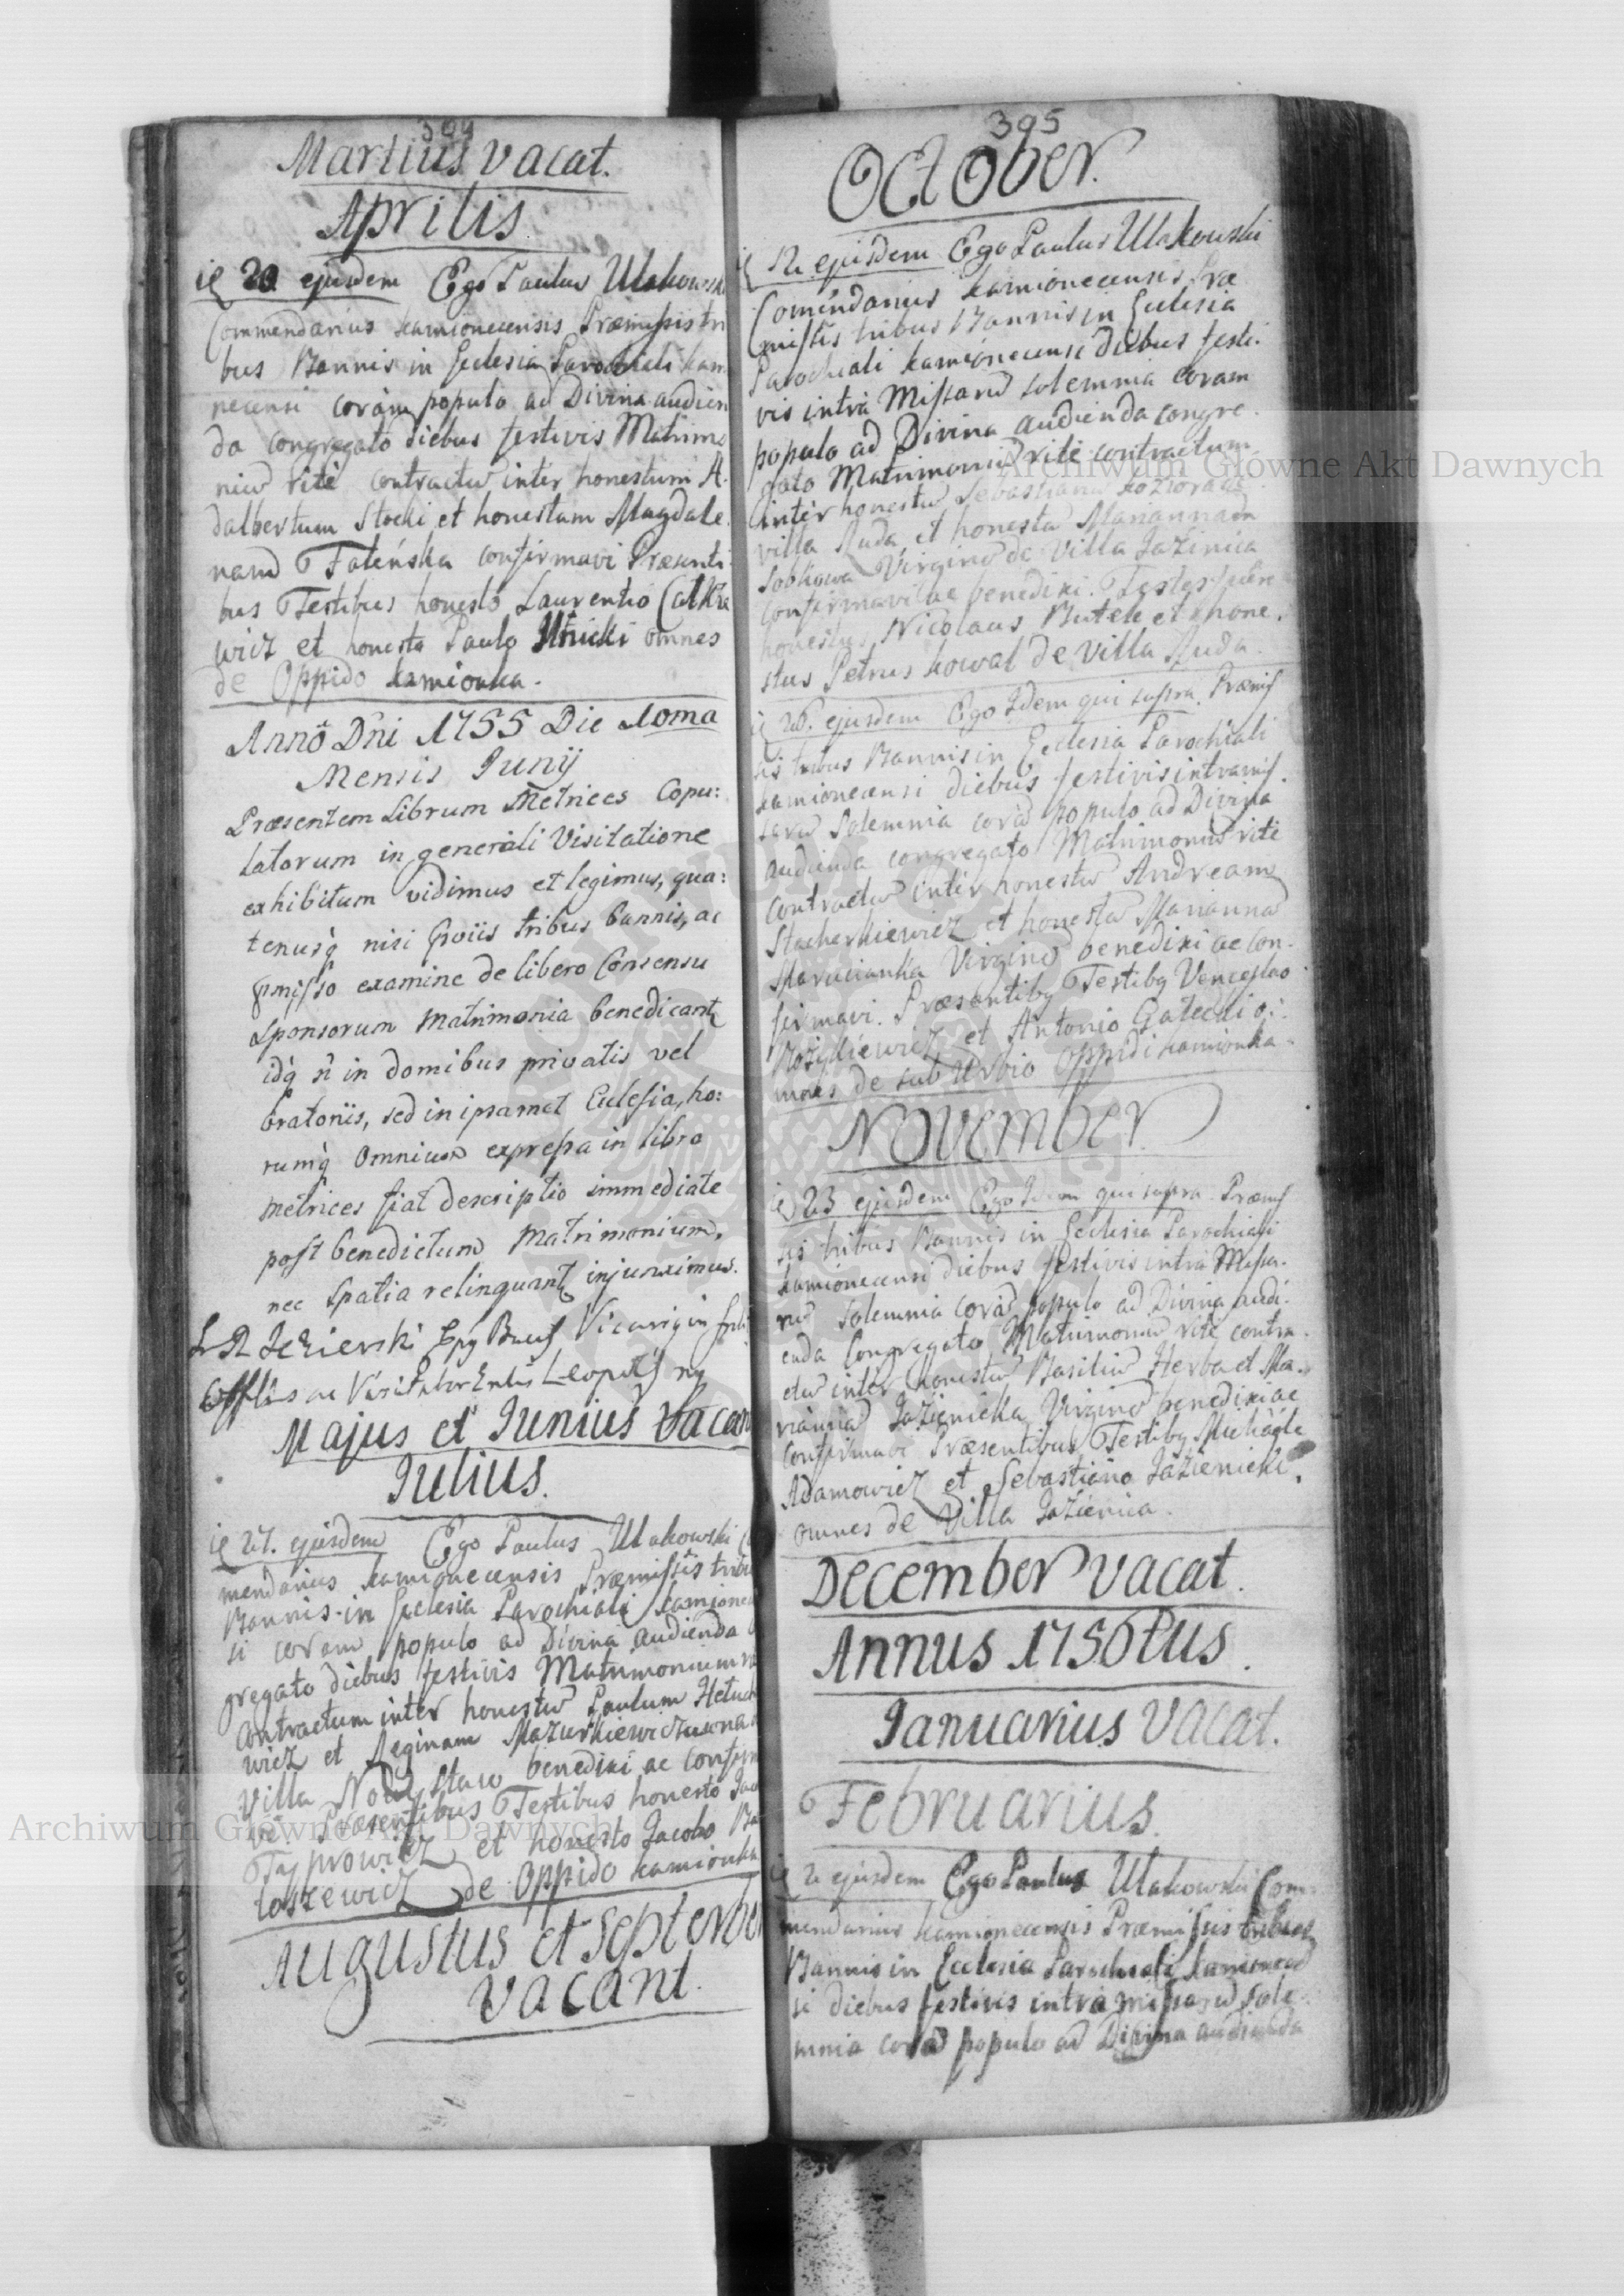 394
Martius vacat.
Aprilis
ie 20 ejusdem Ego Paulus Ulakowski
Commendarius Kamionecensis Præmissis tri
bus Bannis in Ecclesia Parochiali Kam
necensi coram populo ad Divina audien
da congregato diebus festivis Matrimo
niũ ritè contractũ inter honestum A.
dalbertum Stocki et honestam Magdale.
nam Faleńska confirmavi Præsenti
bus Testibus honesto Laurentio
wicz et honesto Paulo omnes
de Oppido Kamionka.
Annõ Dñi 1755 Die
Mensis Junij
Præsentem Librum Metrices Copu:
latorum in generali Visitatione
exhibitum vidimus et legimus, qua:
tenusq̀ nisi tribus bannis, ac
examine de libero Consensu
Sponsorum Matrimonia benedicant
idq̀ ñ in domibus privatis vel
Oratoriis, sed in ipsamet Ecclesia, ho:
rumq̀ Omnium expressa in libro
metrices fiat descriptio immediate
post benedictum Matrimonium,
nec Spatia relinquant, injunximus.
Jezierski
Majus et Junius vacan
Julius.
ie 27. ejusdem Ego Paulus Ulakowski Co
mendarius Kamionecensis Præmissis tribu
Bannis in Ecclesia Parochiali Kamionecen
si coram populo ad Divina audienda
gregato diebus festivis Matrimonium
contractum inter honestũ Paulum
wicz et Reginam Mazurkiewiczuwna
Villa Staw benedixi ac confirm
vi. Præsentibus Testibus honesto
et honesto Jacobo Ba
łaszewicz de Oppido Kamionka
Augustus et September
vacant.
395
October.
ie 12 ejusdem Ego Paulus Ulakowski
Comendarius Kamionecensis Præ
missis tribus Bannis in Ecclesia
Parochiali Kamionecensi diebus festi.
vis intra Missarũ solemnia coram
populo ad Divina audienda congre.
gato Matrimoniũ rite contractum
inter honestũ Sebastianũ
villa Ruda et honestã Mariannam
Sobkowa Virginẽ de Villa Jazinica
confirmavi ac benedixi. Testes fuere
honestus Nicolaus Butek et hone.
stus Petrus Kowal de Villa Ruda.
ie 26. ejusdem Ego Idem qui supra. Præmis
sis tribus Bannis in Ecclesia Parochiali
Kamionecensi diebus festivis intra mis.
sarũ Solemnia corã populo ad Divina
audienda congregato Matrimoniũ rite
contractũ inter honestũ Andream
Stacherkiewicz et honestã Mariannã
Virginẽ benedixi ac con.
firmavi. Præsentibꝫ Testibꝫ Venceslao
et Antonio Gałecki o:
mnes de sub Urbio Oppidi Kamionka.
November.
ie 23 ejusdem Ego Idem qui supra. Præmis
sis tribus Bannis in Ecclesia Parochiali
Kamionecensi diebus festivis intra Missa.
rũ solemnia corã populo ad Divina audi.
enda Congregato Matrimoniũ rite contra.
ctũ inter honestũ Basiliũ Herba et Ma.
riannã Jazienicka Virginẽ benedixi ac
confirmavi Præsentibus Testibꝫ Michaele
Adamowicz et Sebastiano Jazienicki.
omnes de Villa Jazienica.
December vacat.
Annus 1756tus.
Januarius vacat.
Februarius.
ie 2 ejusdem Ego Paulus Ulakowski Com.
mendarius Kamionecensis Præmissis tribus
Bannis in Ecclesia Parochiali Kamionecen
si diebus festivis intra missarũ sole.
mnia corã populo ad Divina audienda
Archiwum Główne Akt Dawnych
Archiwum Główne Akt Dawnych